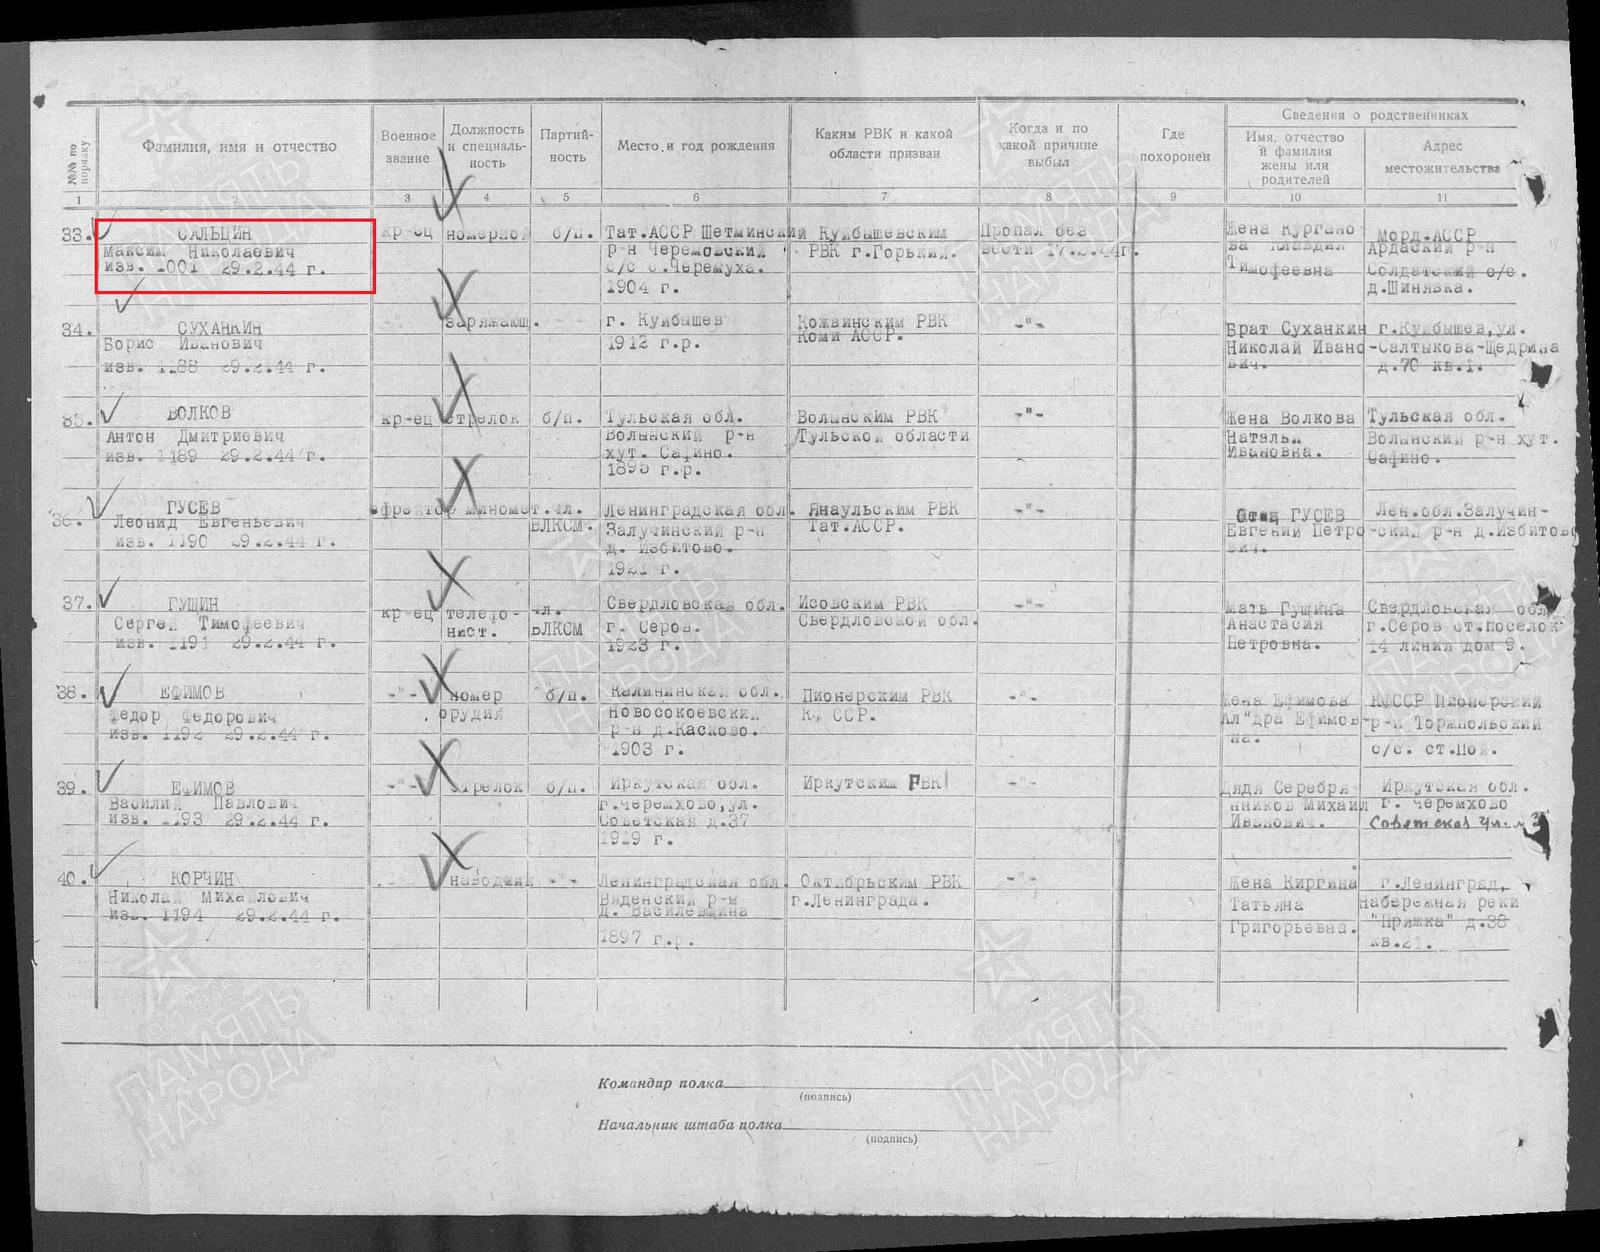 №№ по порядку.
Фамилия, имя и отчество
Военное звание
Должность и специаль-ность
Партий-ность
Место и год рождения
Каким РВК и какой области призван
Когда и по какой причине выбыл
Где похоронен
Сведения о родственниках
Имя, отчество и фамилия жены или родителей
Адрес местожительства
1 3 4 5 6 7 8 9 10 11
33. САЛЬЦИН кр-ец номерной б/п. Тат.АССР Шетминский Куйбышевским Пропал без Жена Кургано Морд.АССР
Максим Николаевич р-н Черемовский РВК г.Горький. вести 17.2.44г. ва Клавдия Ардаский р-н
изв. 1001 29.2.44 г. с/с с.Черемуха. Тимофеевна Солдатский с/с.
1904 г. д.Шинявка.
34. СУХАНКИН -"- заряжающ. -"- г. Куйбышев Кожвинским РВК -"- Брат Суханкин г.Куйбышев,ул.
Борис Иванович 1912 г.р. Коми АССР. Николай Ивано-Салтыкова-Щедрина
изв. 1188 29.2.44 г. вич. д.70 кв.1.
35. ВОЛКОВ кр-ец стрелок б/п. Тульская обл. Волынским РВК -"- Жена Волкова Тульская обл.
Антон Дмитриевич Волынский р-н Тульской области Наталья Волынский р-н хут.
изв. 1189 29.2.44 г. хут. Сафино. Ивановна. Сафино.
1895 г.р.
36. ГУСЕВ ефрейтор миномет. чл. Ленинградская обл. Янаульским РВК -"- Отец ГУСЕВ Лен.обл.Залучин-
Леонид Евгеньевич ВЛКСМ. Залучинский р-н Тат.АССР. Евгений Петро-ский р-н д.Избитово
изв. 1190 29.2.44 г. д. Избитово. вич.
1921 г.
37. ГУЩИН кр-ец телефо- чл. Свердловская обл. Исовским РВК -"- Мать Гущина Свердловская обл.
Сергей Тимофеевич нист. ВЛКСМ г. Серов. Свердловской обл. Анастасия г.Серов ст.поселок
изв. 1191 29.2.44 г. 1923 г. Петровна. 14 линия дом 9.
38. ЕФИМОВ -"- номер б/п. Калининская обл. Пионерским РВК -"- Жена Ефимова КФССР Пионерский
Федор Федорович орудия Новосокоевский КФ ССР. Ал"дра Ефимов- р-н Торжпольский
изв. 1192 29.2.44 г. р-н д.Касково. на. с/с. ст.Пой.
1903 г.
39. ЕФИМОВ -"- стрелок б/п. Иркутская обл. Иркутским РВК -"- Дядя Серебря Иркутская обл.
Василий Павлович г.Черемхово,ул. нников Михаил г. Черемхово
изв. 1193 29.2.44 г. Советская д.37 Иванович. Советская
1919 г.
40. КОРЧИН наводчик -"- Ленинградская обл. Октябрьским РВК -"- Жена Киргина г.Ленинград,
Николай Михайлович Вяденский р-н г.Ленинграда. Татьяна набережная реки
изв. 1194 29.2.44 г. д. Василевщина Григорьевна. "Пряжка" д.38
1897 г.р. кв.21.
Командир полка
(подпись)
Начальник штаба полка
(подпись)
ПАМЯТЬ НАРОДА